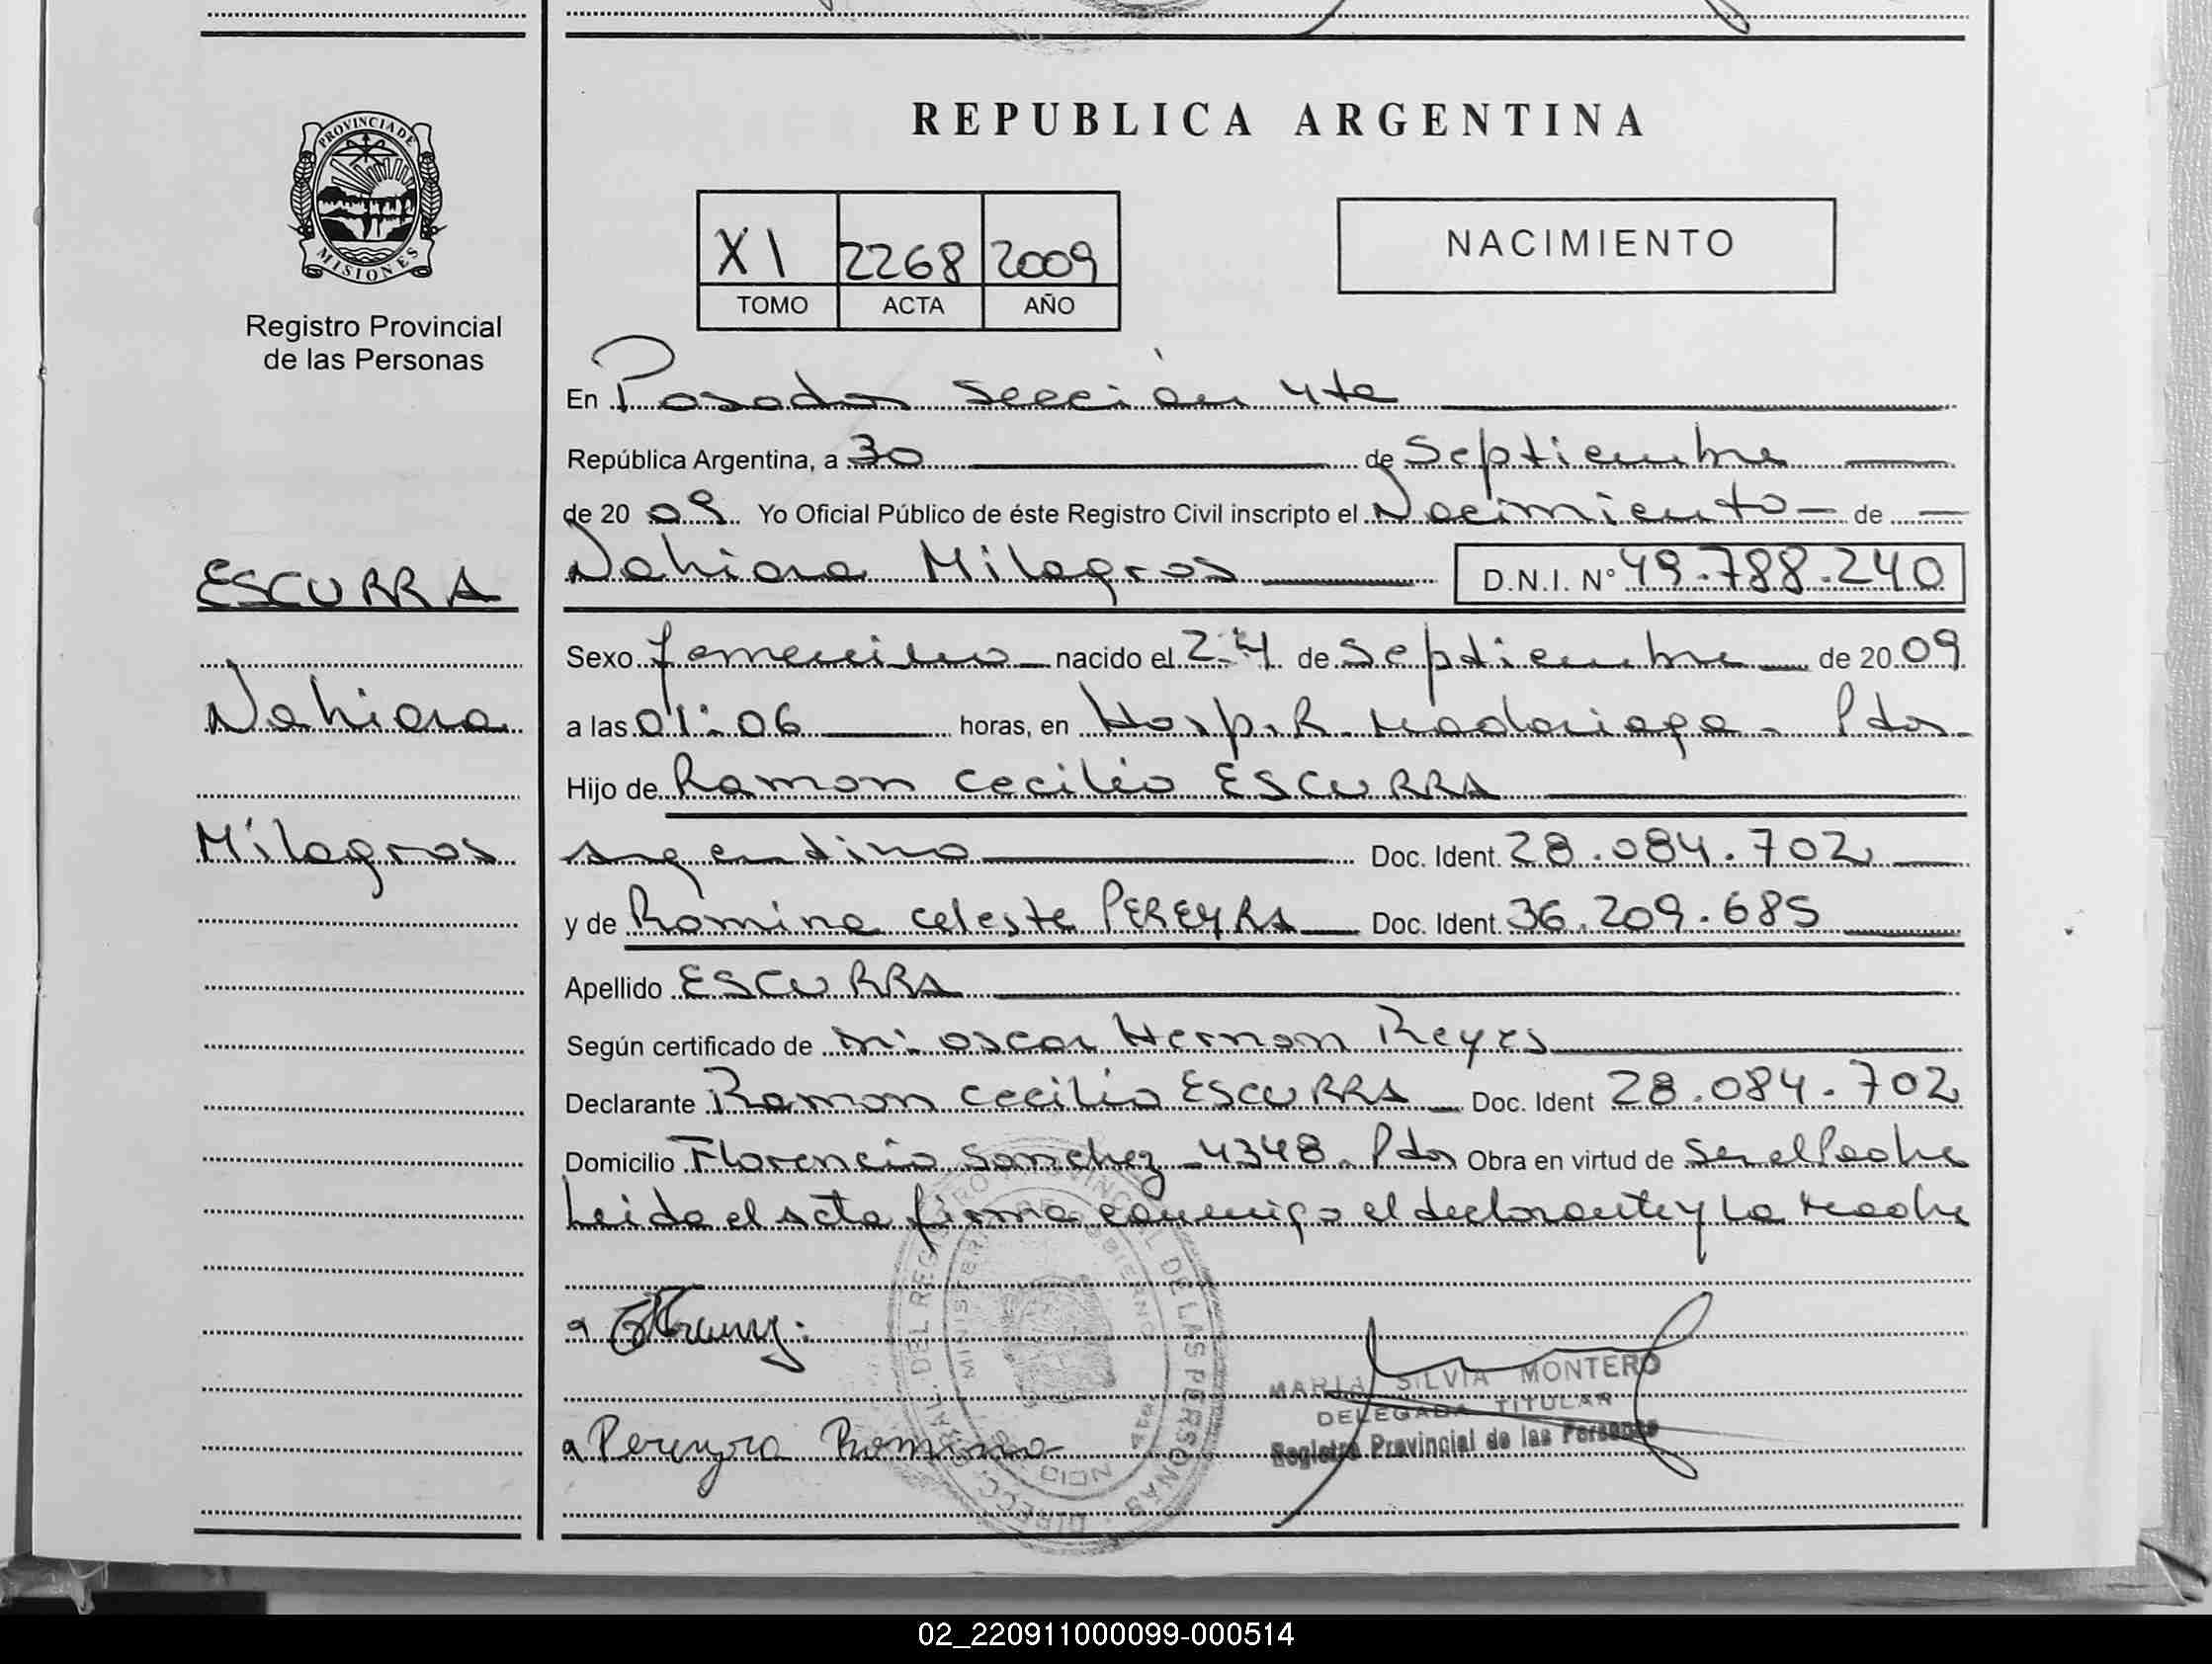 REPUBLICA ARGENTINA
PROVINCIA DE
MISIONES
Registro Provincial
de las Personas
XI 2268 2009
TOMO ACTA AÑO
NACIMIENTO
En Posadas Sección 4ta
República Argentina, a 30 de Septiembre
de 2009 Yo Oficial Público de éste Registro Civil inscripto el Nacimiento de
Nahiara Milagros D.N.I. N° 49.788.240
ESCURRA
Nahiara
Milagros
Sexo femenino nacido el 24 de Septiembre de 2009
a las 01:06 horas, en Hosp. R. Madariaga - Pdas.
Hijo de Ramon Cecilio ESCURRA
Argentino Doc. Ident. 28.084.702
y de Romina Celeste PEREYRA Doc. Ident. 36.209.685
Apellido ESCURRA
Según certificado de Oscar Hernan Reyes
Declarante Ramon Cecilio ESCURRA Doc. Ident 28.084.702
Domicilio Florencio Sanchez 4348. Pdas Obra en virtud de Ser el Padre
Leida el acta firma conmigo el declarante y La Madre
Pereyra Romina
MARIA SILVIA MONTERO
DELEGADA TITULAR
Registro Provincial de las Personas
02_220911000099-000514